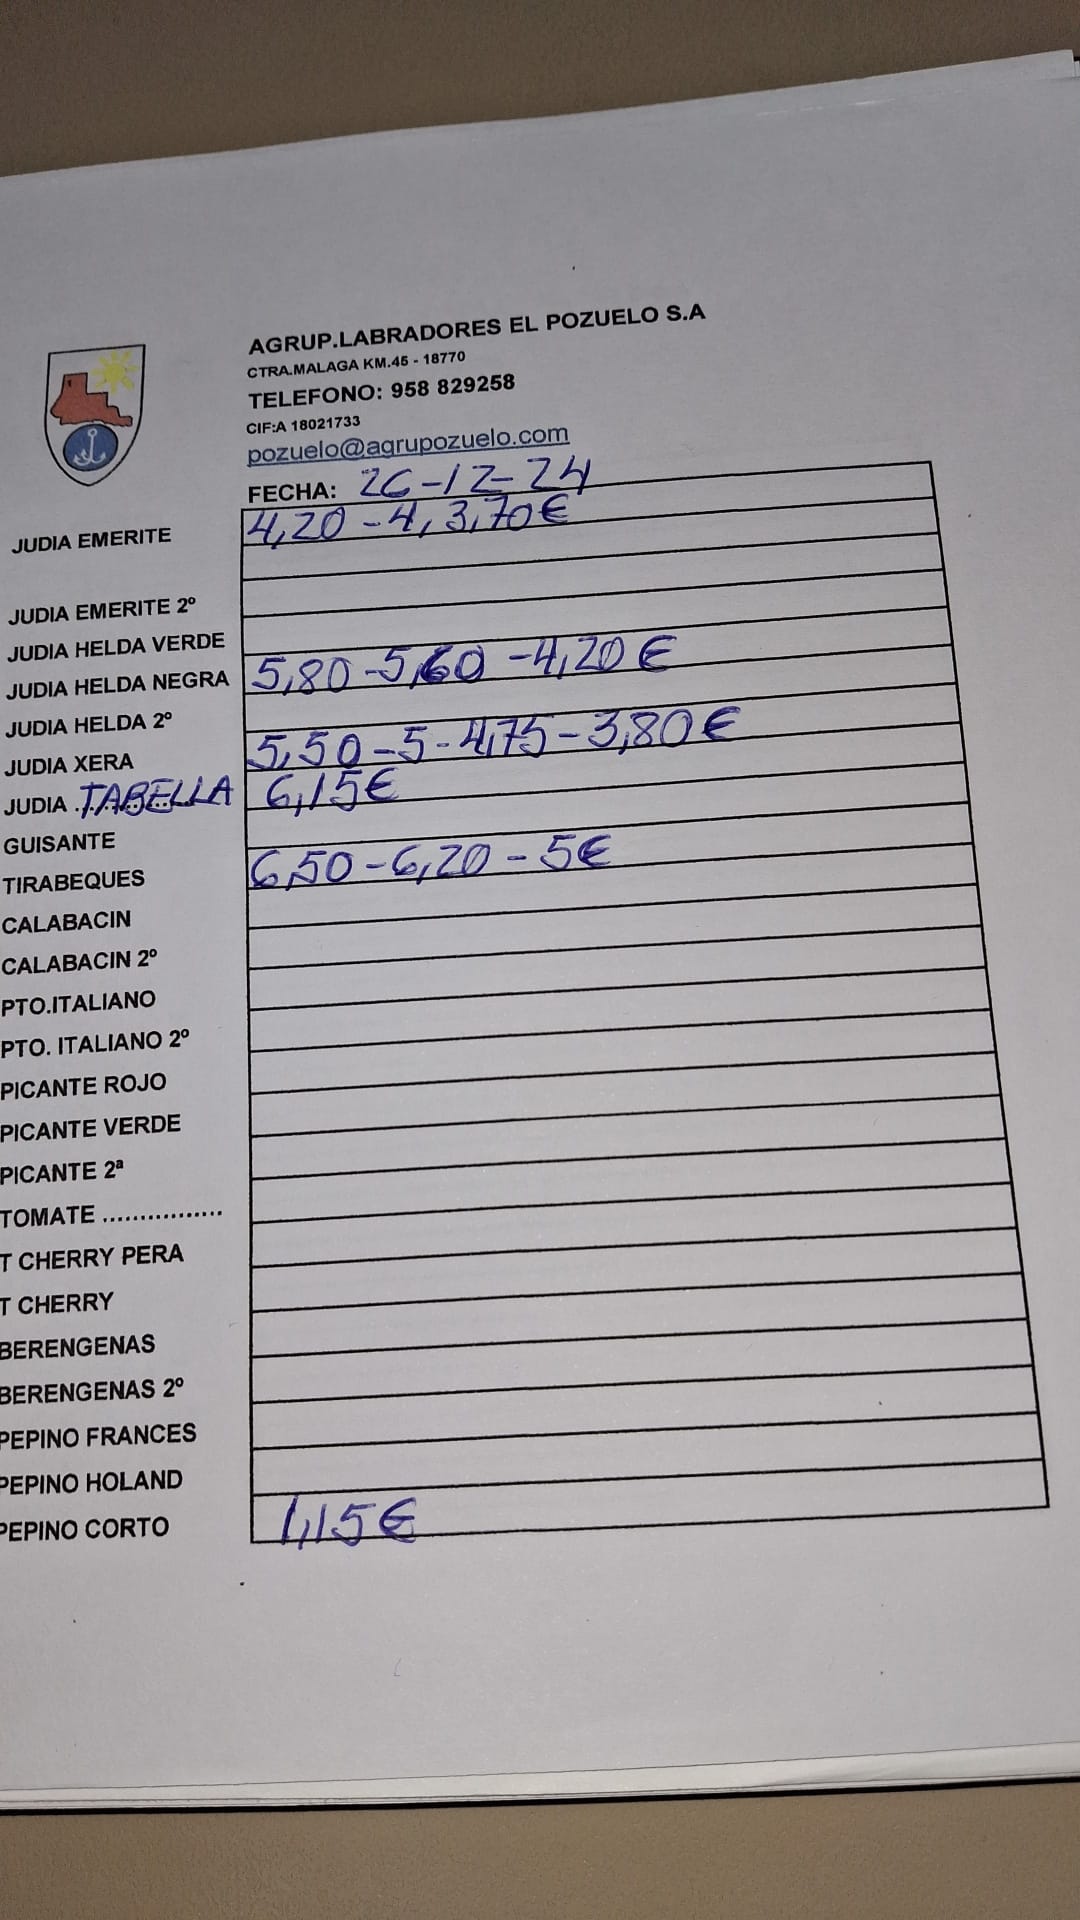 AGRUP.LABRADORES EL POZUELO S.A
CTRA.MALAGA KM.45 - 18770
TELEFONO: 958 829258
CIF:A 18021733
pozuelo@agrupozuelo.com
FECHA: 26-12-24
JUDIA EMERITE 4,20 - 4, 3,70€
JUDIA EMERITE 2º
JUDIA HELDA VERDE
JUDIA HELDA NEGRA 5,80 - 5,60 - 4,20 €
JUDIA HELDA 2º
JUDIA XERA 5,50 - 5 - 4,75 - 3,80 €
JUDIA TABELLA 6,15€
GUISANTE
TIRABEQUES 6,50 - 6,20 - 5€
CALABACIN
CALABACIN 2º
PTO.ITALIANO
PTO. ITALIANO 2º
PICANTE ROJO
PICANTE VERDE
PICANTE 2ª
TOMATE ................
T CHERRY PERA
T CHERRY
BERENGENAS
BERENGENAS 2º
PEPINO FRANCES
PEPINO HOLAND
PEPINO CORTO 1,15€